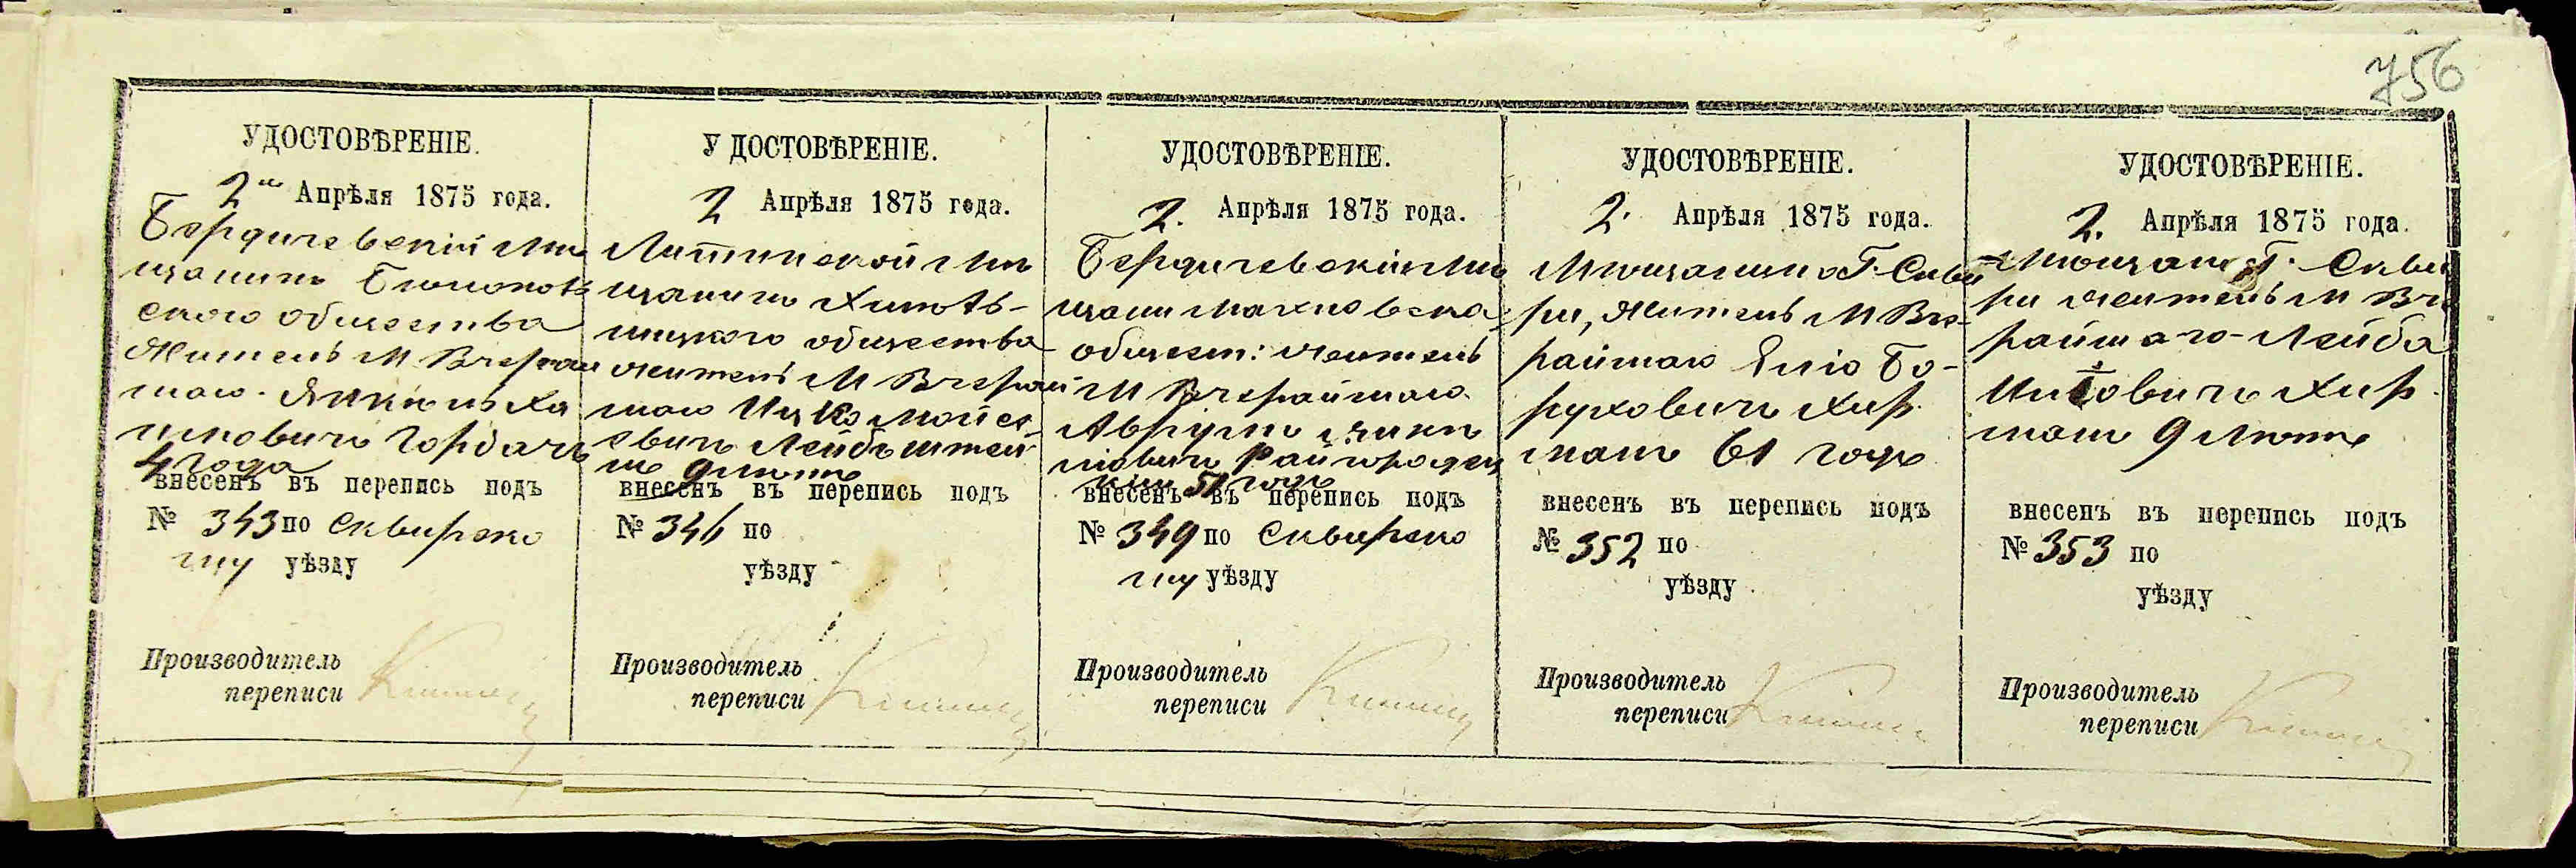 756
УДОСТОВѢРЕНІЕ.
2го Апрѣля 1875 года.
Бердичевскій Мѣ
щанинъ
ского общества
Житель М Вчерай
шаго
Горбачъ
4 года
внесенъ въ перепись подъ
№ 343 по Сквирско
му уѣзду
Производитель
переписи
УДОСТОВѢРЕНІЕ.
2 Апрѣля 1875 года.
Мѣ
щанинъ Хмѣль-
ницкого общества
житель М Вчерай
шаго Ицко Мойсе
евичъ Лейбъштей
нъ 9 лѣтъ
внесенъ въ перепись подъ
№ 346 по
уѣзду
Производитель
переписи
УДОСТОВѢРЕНІЕ.
2. Апрѣля 1875 года.
Бердичевскій Мѣ
щани Махновска
общест: житель
М Вчерайшаго
Аврумъ
Райгородец
кій 51 годъ
внесенъ въ перепись подъ
№ 349 по Сквирско
му уѣзду
Производитель
переписи
УДОСТОВѢРЕНІЕ.
2. Апрѣля 1875 года.
Мѣщанинъ Г. Скви
ри, Житель М Вче-
райшаго Еліо Бо-
руховичъ Хир
машъ 61 годъ
внесенъ въ перепись подъ
№ 352 по
уѣзду
Производитель
переписи
УДОСТОВѢРЕНІЕ.
2. Апрѣля 1875 года.
Мѣщани Г. Скви
ри житель М Вче
райшаго - Лейба
Хир
машъ 9 лѣтъ
внесенъ въ перепись подъ
№ 353 по
уѣзду
Производитель
переписи